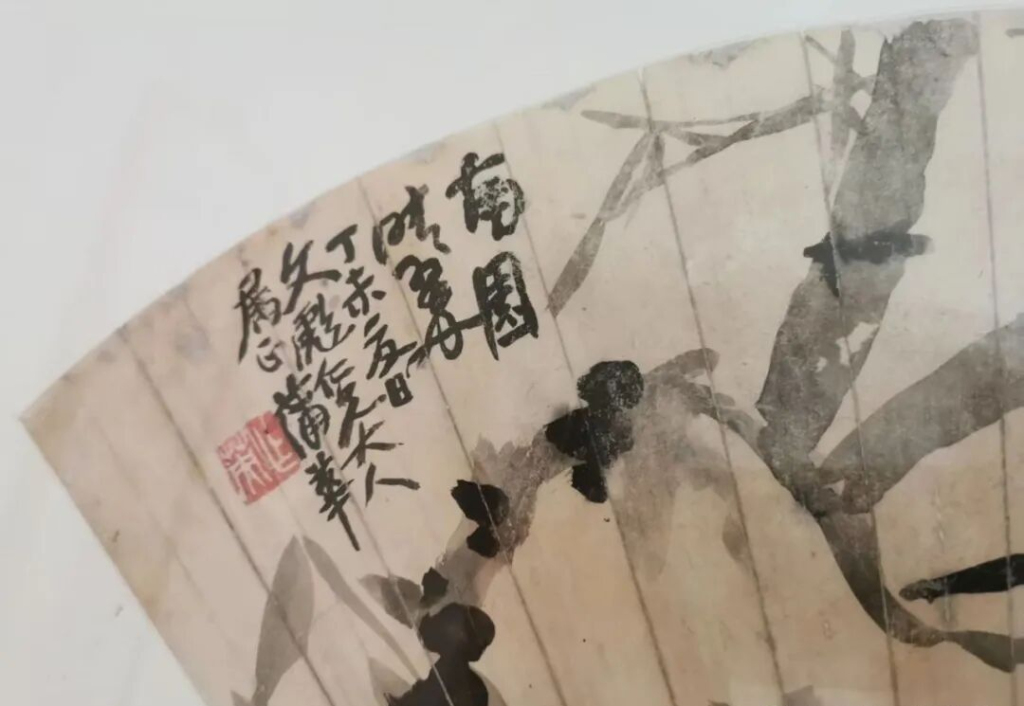 南園
晴翠
丁未夏日
文彪仁兄大人
屬正蒲華
作英